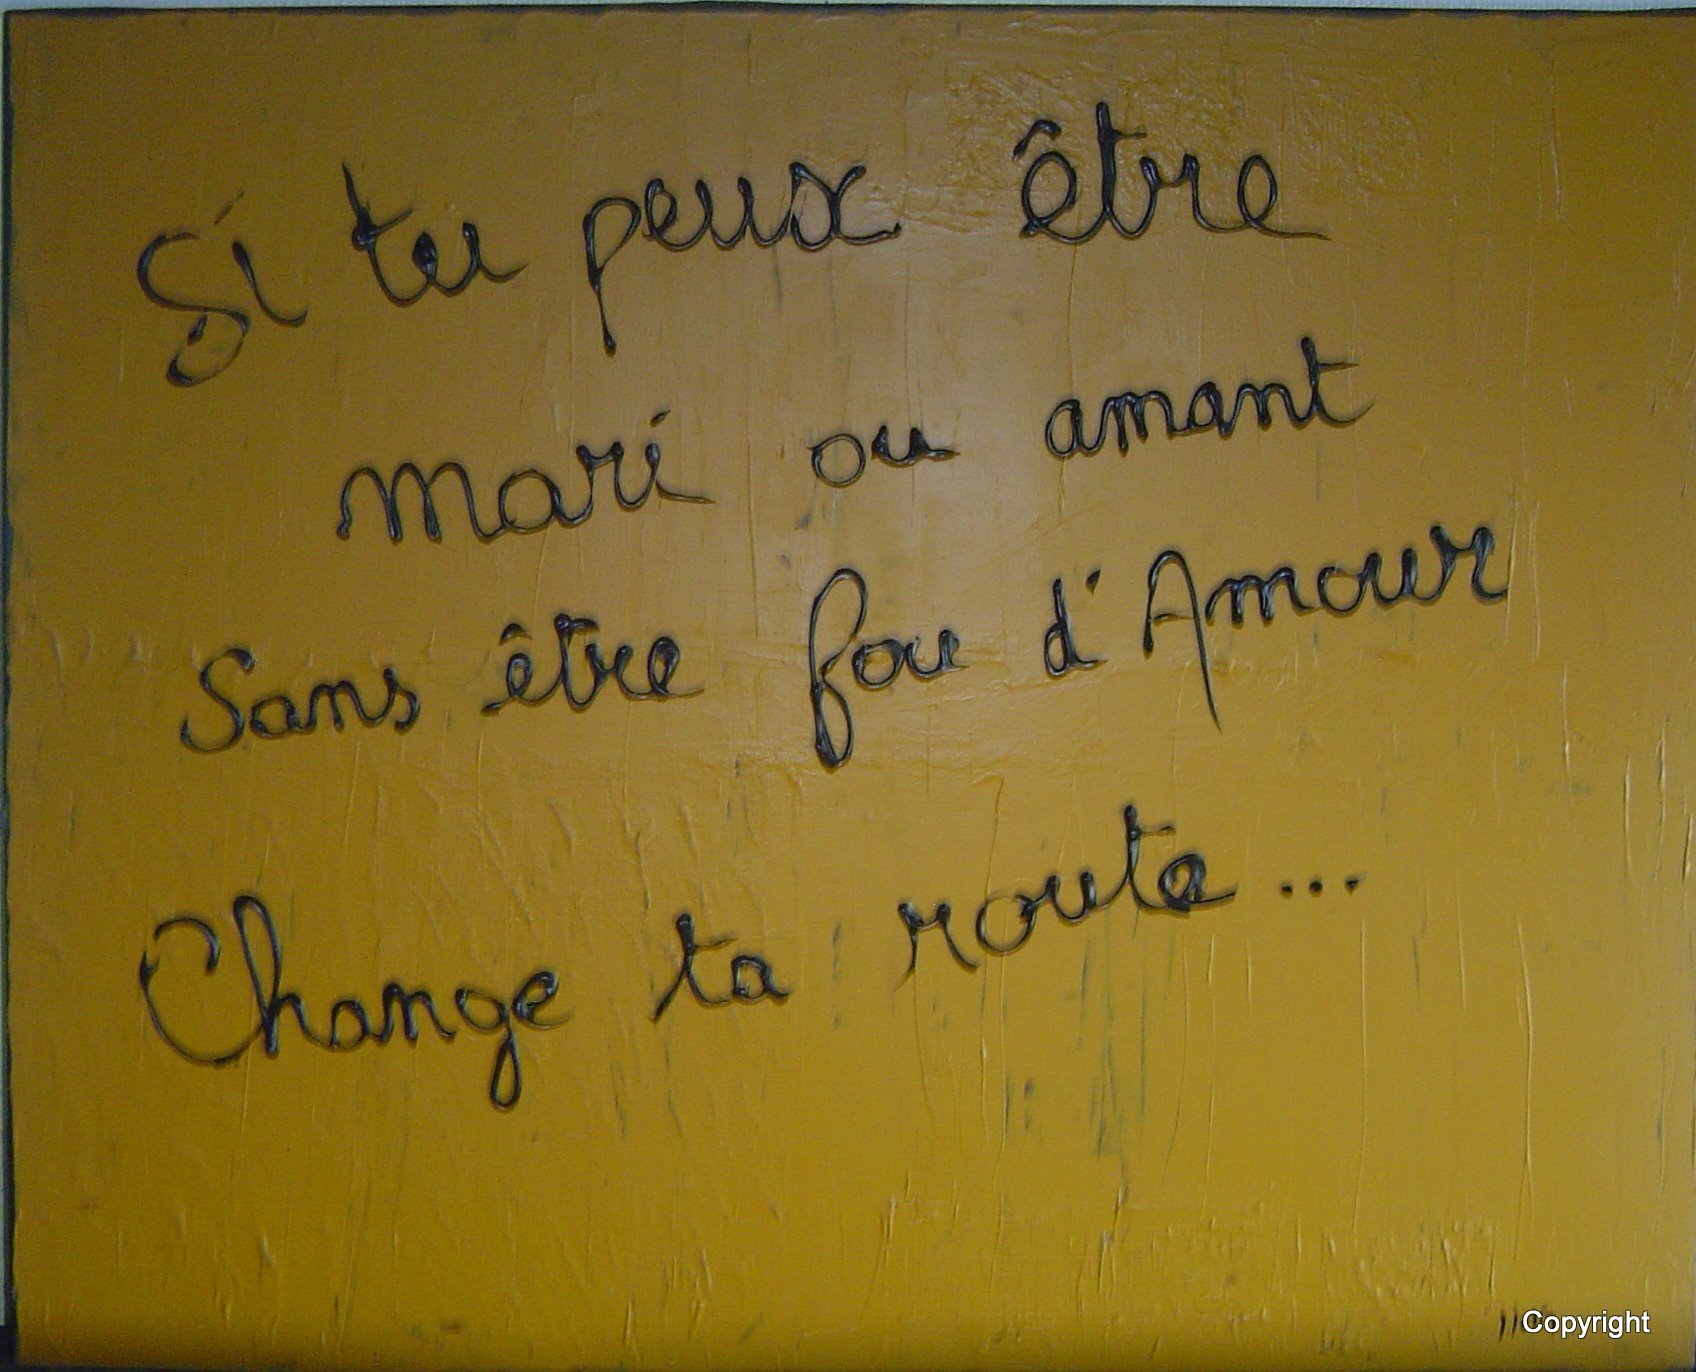 Si tu peux être
mari ou amant
Sans être fou d'Amour
Change ta route...
Copyright